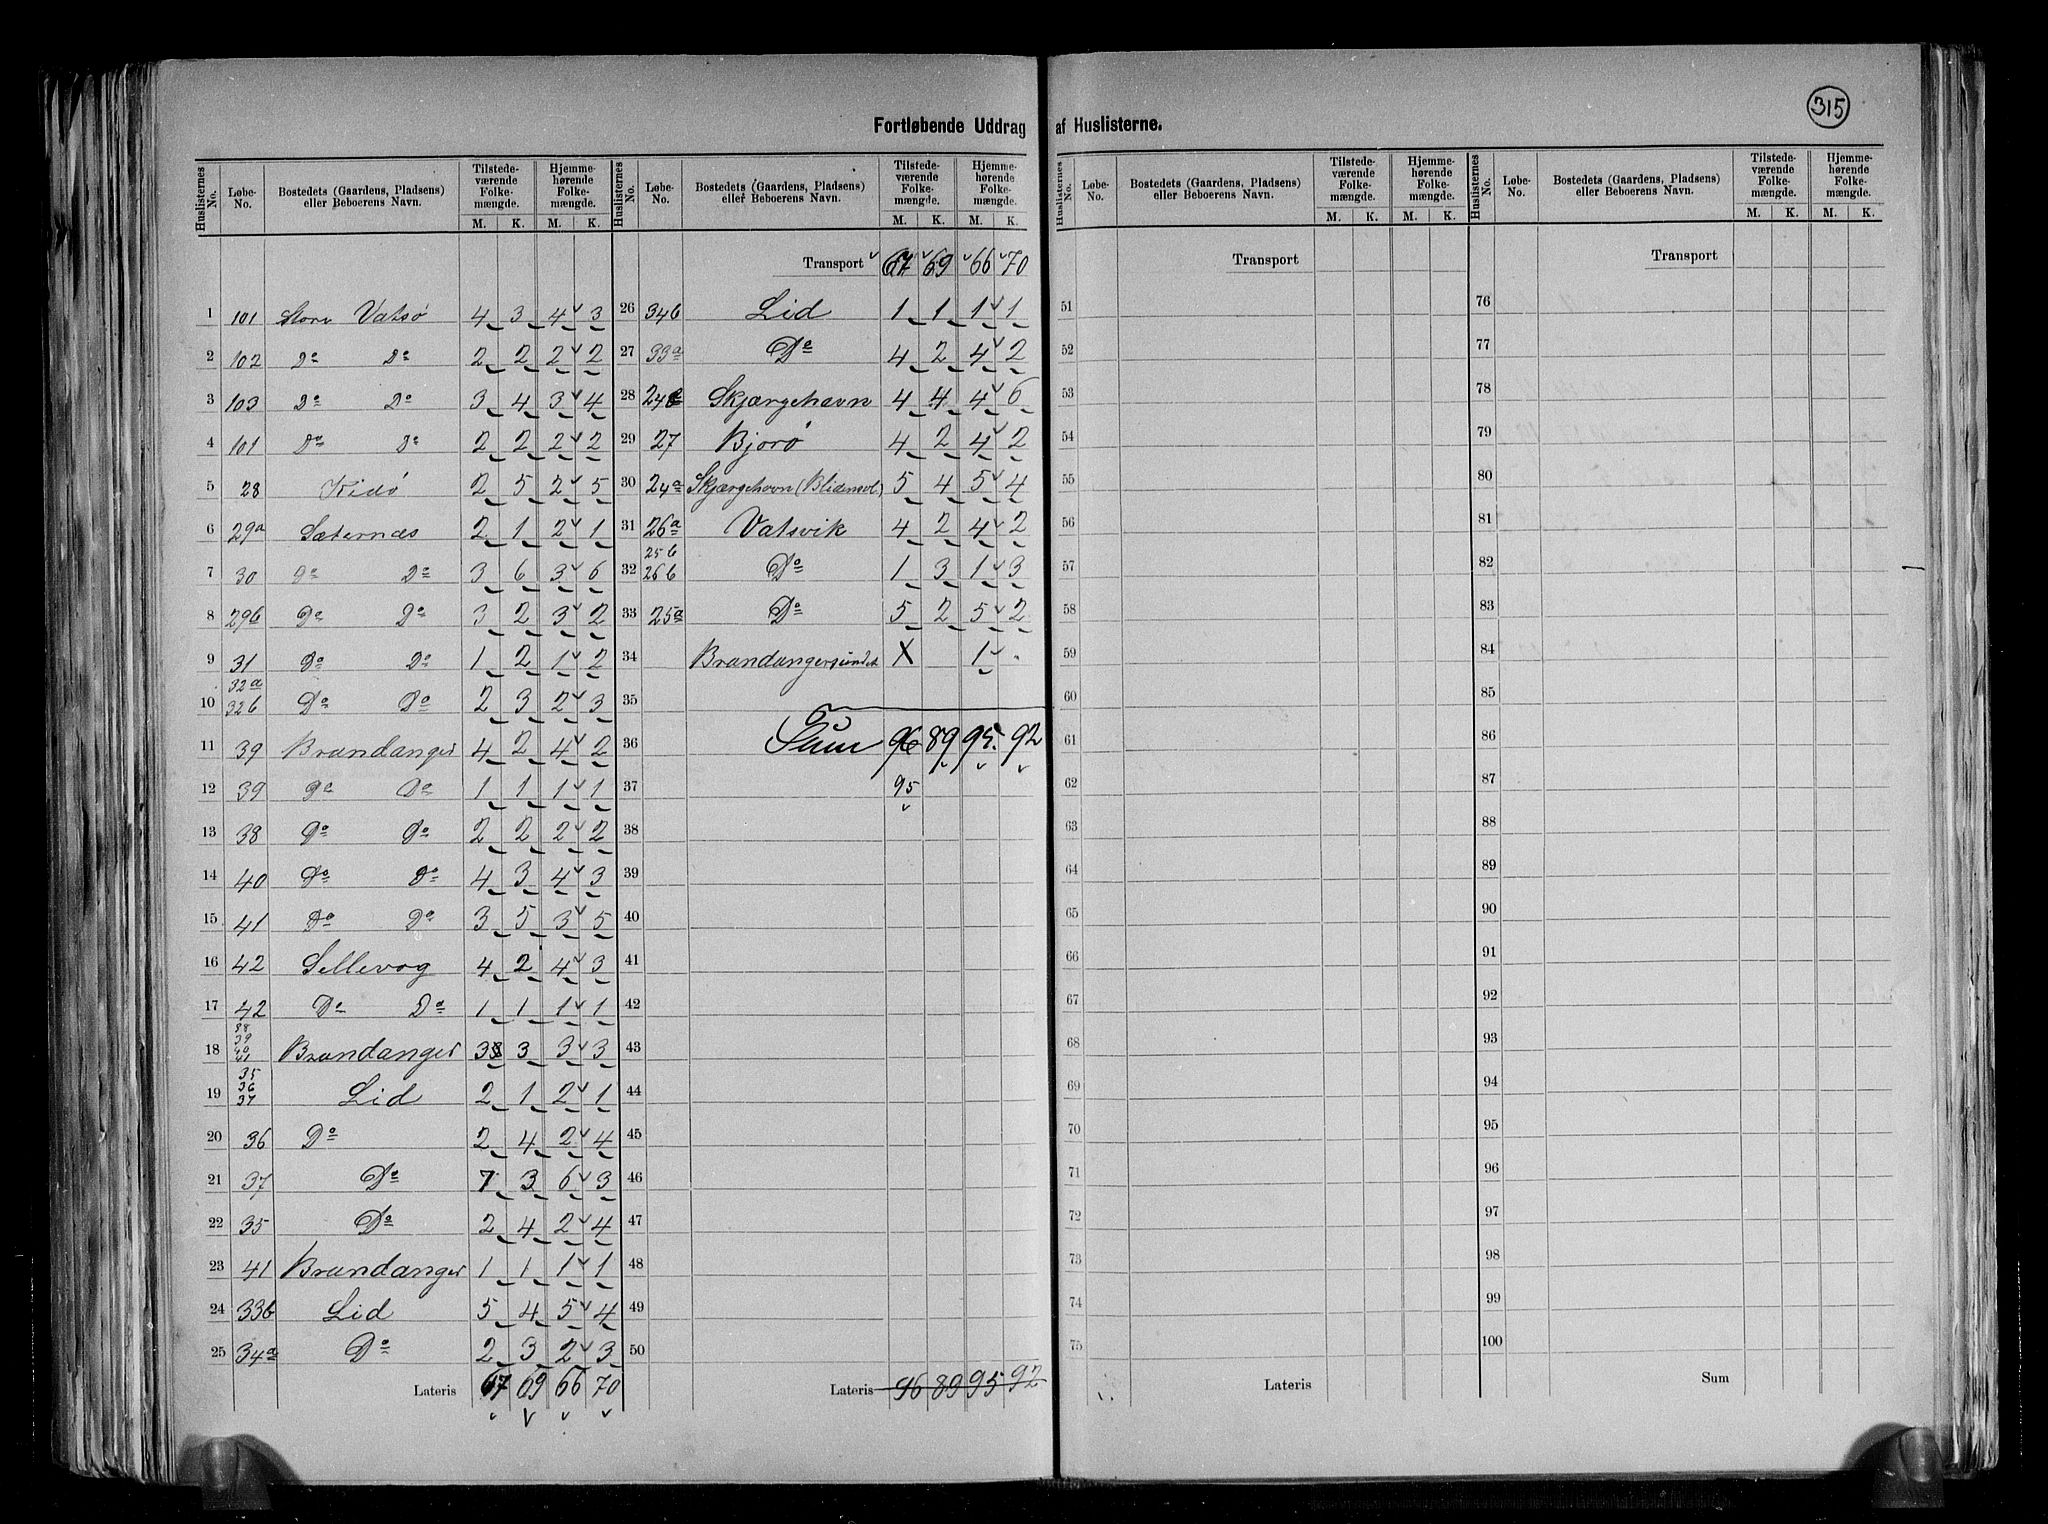 315
Fortløbende Uddrag af Huslisterne.
Huslisternes No. | Løbe-No. | Bostedets (Gaardens, Pladsens) eller Beboerens Navn. | Tilstedeværende Folkemængde. M. K. | Hjemmehørende Folkemængde. M. K.
1 101 Store Vatsø 4 3 4 3
2 102 Do Do 2 2 2 2
3 103 Do Do 3 4 3 4
4 101 Do Do 2 2 2 2
5 28 Kidø 2 5 2 5
6 29a Sæternæs 2 1 2 1
7 30 Do Do 3 6 3 6
8 29b Do Do 3 2 3 2
9 31 Do Do 1 2 1 2
10 32a 32b Do Do 2 3 2 3
11 39 Brandanger 4 2 4 2
12 39 Do Do 1 1 1 1
13 38 Do Do 2 2 2 2
14 40 Do Do 4 3 4 3
15 41 Do Do 3 5 3 5
16 42 Sellevog 4 2 4 3
17 42 Do Do 1 1 1 1
18 38 39 40 41 Brandanger 3 3 3 3
19 35 36 37 Lid 2 1 2 1
20 36 Do 2 4 2 4
21 37 Do 7 3 6 3
22 35 Do 2 4 2 4
23 41 Brandanger 1 1 1 1
24 33b Lid 5 4 5 4
25 34a Do 2 3 2 3
Lateris 67 69 66 70
Huslisternes No. | Løbe-No. | Bostedets (Gaardens, Pladsens) eller Beboerens Navn. | Tilstedeværende Folkemængde. M. K. | Hjemmehørende Folkemængde. M. K.
Transport 67 69 66 70
26 34b Lid 1 1 1 1
27 33a Do 4 2 4 2
28 24 Skjærgehavn 4 4 4 6
29 27 Bjorø 4 2 4 2
30 24a Skjærgehavn (Blidensol) 5 4 5 4
31 26a Vatsvik 4 2 4 2
32 25b 26b Do 1 3 1 3
33 25a Do 5 2 5 2
34 Brandangersundet X 1 -
35
36 Sum 96 89 95 92
37 95
38
39
40
41
42
43
44
45
46
47
48
49
50
Lateris 96 89 95 92
Huslisternes No. | Løbe-No. | Bostedets (Gaardens, Pladsens) eller Beboerens Navn. | Tilstedeværende Folkemængde. M. K. | Hjemmehørende Folkemængde. M. K.
Transport
51
52
53
54
55
56
57
58
59
60
61
62
63
64
65
66
67
68
69
70
71
72
73
74
75
Lateris
Huslisternes No. | Løbe-No. | Bostedets (Gaardens, Pladsens) eller Beboerens Navn. | Tilstedeværende Folkemængde. M. K. | Hjemmehørende Folkemængde. M. K.
Transport
76
77
78
79
80
81
82
83
84
85
86
87
88
89
90
91
92
93
94
95
96
97
98
99
100
Sum